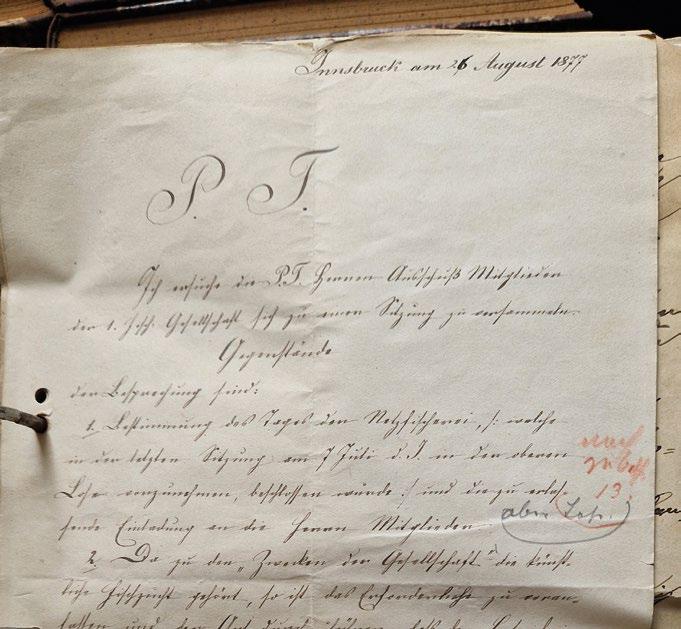 Innsbruck am 26 August 1877
P. T.
Ich ersuche die P.T. Herren Ausschuß Mitglieder
der 1. Fisch. Gesellschaft sich zu einer Sitzung zu versammeln.
Gegenstände
der Besprechung sind:
1. Bestimmung des Tages der Netzfischerei, /: welche
in der letzten Sitzung am 7 Juli d. J. in der oberen
Lohe vorzunehmen, beschlossen wurde :/ und die zu erlas-
sende Einladung an die Herrn Mitglieder.
2. Da zu den „Zwecken der Gesellschaft" die künst-
liche Fischzucht gehört, so ist das Erforderliche zu veran-
lassen und
nach
13.
aber